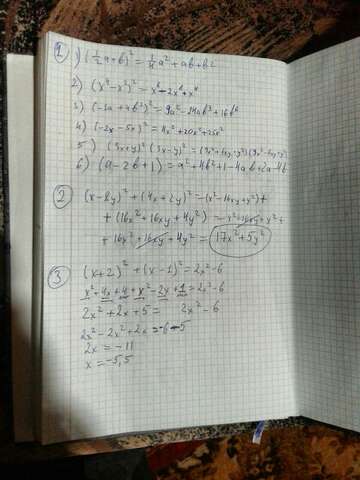 ① 1) (½a+b)² = ¼a² + ab + b²
2) (x⁴-x²)² = x⁸-2x⁶+x⁴
3) (-3a+4b³)² = 9a²-24ab³+16b⁶
4) (-2x-5x)² = 4x²+20x²+25x²
5) (3x+y)² (3x-y)² = (9x²+6xy+y²)(9x²-6xy+y²)
6) (a-2b+1)² = a²+4b²+1-4a
② (x-2y)² + (4x+2y)² = (x²-16xy+y²)+
+(16x²+16xy+4y²) = x²-16xy+y²+
+16x²+16xy+4y² = 17x²+5y²
③ (x+2)² + (x-1)² = 2x²-6
x²+4x+4+x²-2x+1=2x²-6
2x²+2x+5 = 2x²-6
2x²-2x²+2x=-6-5
2x = -11
x = -5,5